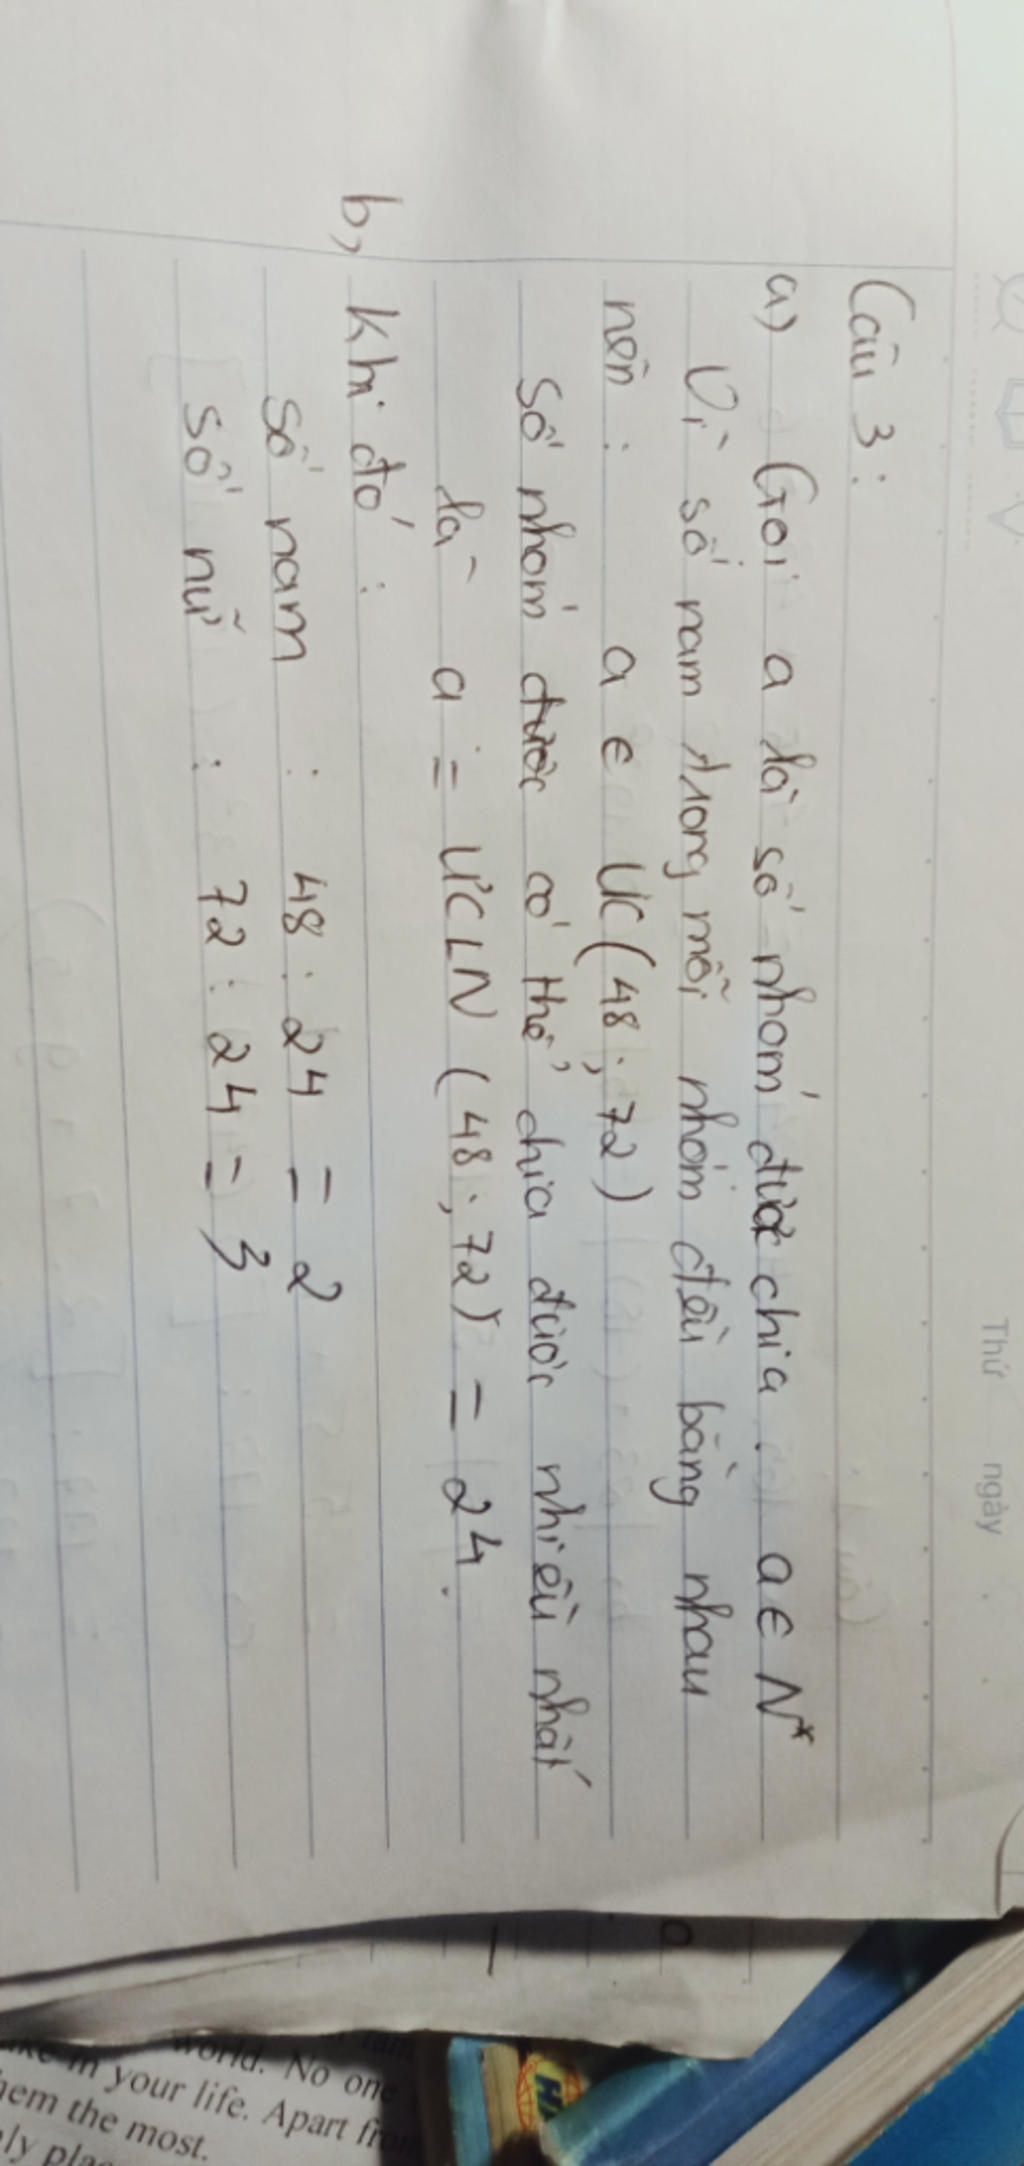 Thứ ngày
Câu 3:
a) Gọi a là số nhóm được chia. a∈ N*
Vì số nam trong mỗi nhóm đều bằng nhau
nên: a ∈ ƯC (48; 72)
Số nhóm được có thể chia được nhiều nhất
là a = ƯCLN (48; 72) = 24.
b, Khi đó:
Số nam : 48 : 24 = 2
Số nữ : 72 : 24 = 3
world. No one
in your life. Apart from
hem the most.